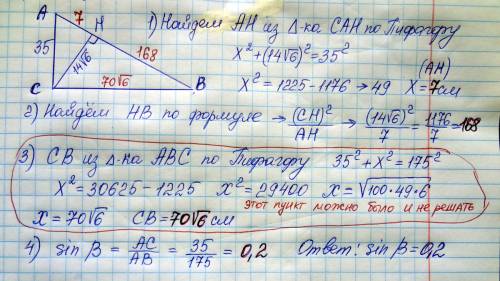 A
7
H
35
14√6
168
C
70√6
B
1) Найдем AH из Δ-ка CAH по Пифагору
X² + (14√6)² = 35²
X² = 1225 - 1176 → 49 X = 7см
(AH)
2) Найдём HB по формуле → (CH)²/AH → (14√6)²/7 = 1176/7 = 168
3) CB из Δ-ка ABC по Пифагору 35² + X² = 175²
X² = 30625 - 1225 X² = 29400 X = √100·49·6
этот пункт можно было и не решать
X = 70√6 CB = 70√6 см
4) sin β = AC/AB = 35/175 = 0,2 Ответ: sin β = 0,2